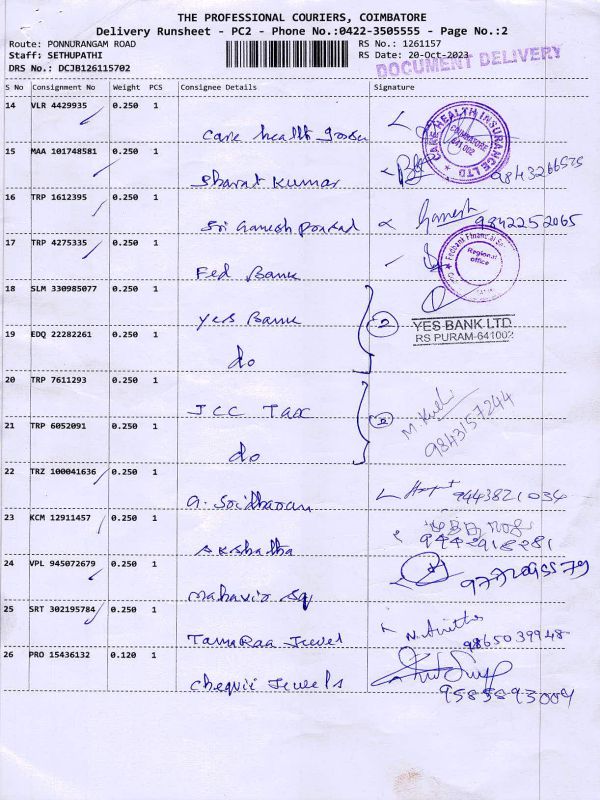 THE PROFESSIONAL COURIERS, COIMBATORE
Delivery Runsheet - PC2 - Phone No.:0422-3505555 - Page No.:2
Route: PONNURANGAM ROAD RS No.: 1261157
Staff: SETHUPATHI RS Date: 20-Oct-2023
DRS No.: DCJB126115702 DOCUMENT DELIVERY
S No Consignment No Weight PCS Consignee Details Signature
14 VLR 4429935 0.250 1
Care health CARE HEALTH INSURANCE LTD COIMBATORE 641 002
15 MAA 101748581 0.250 1
Sharat Kumar 9843266575
16 TRP 1612395 0.250 1
Sri Ganesh Ganesh 9842252065
17 TRP 4275335 0.250 1
Fed Bank Fedbank Financial Regional office
18 SLM 330985077 0.250 1
Yes Bank 2 YES BANK LTD
RS PURAM-641002
19 EDQ 22282261 0.250 1
do
20 TRP 7611293 0.250 1
JCC Tax 2 9843157244
21 TRP 6052091 0.250 1
do
22 TRZ 100041636 0.250 1
9443821034
23 KCM 12911457 0.250 1
Akshatha 9442918281
24 VPL 945072679 0.250 1
Mahavir
25 SRT 302195784 0.250 1
Jewel 9865039948
26 PRO 15436132 0.120 1
Jewels 9585593009